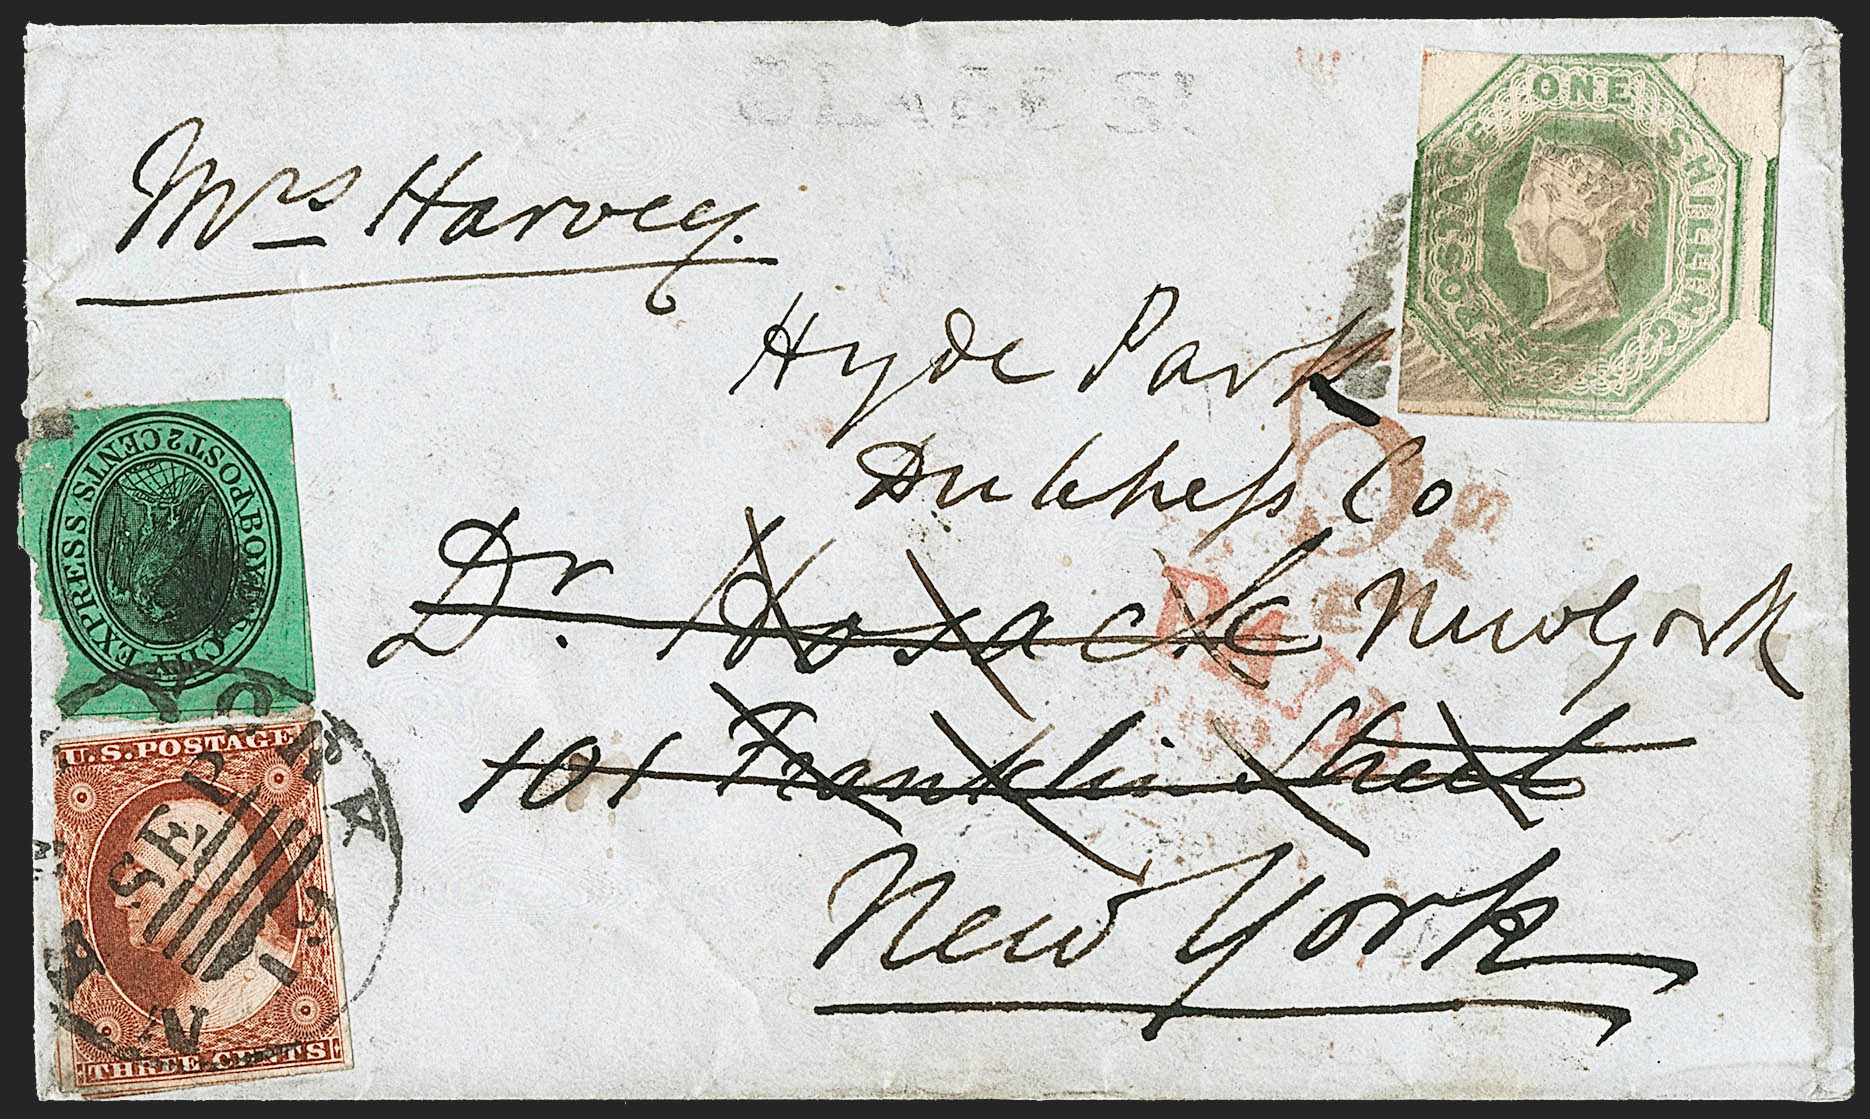 Mrs Harvey.
Hyde Park
Dutchess Co
Dr. Hosack New York
101 Franklin Street
New York
ONE SHILLING
POSTAGE
BOYD'S CITY EXPRESS POST 2 CENTS
U.S. POSTAGE
THREE CENTS
NEW YORK
SEP
PAID